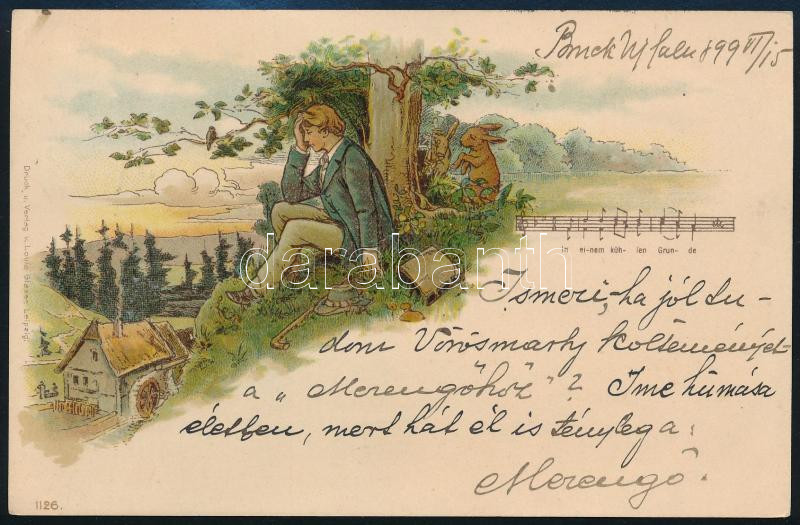 Bruck Ujfalu 899 VI/15
Druck u. Verlag v. Louis Glaser, Leipzig.
In ei-nem küh-len Grun-de
darabanth
Ismeri, ha jól tu-
dom Vörösmarty költeményét
a „Merengőhöz"? Ime húmása
életben, mert hát él is tényleg a:
Merengő.
1126.